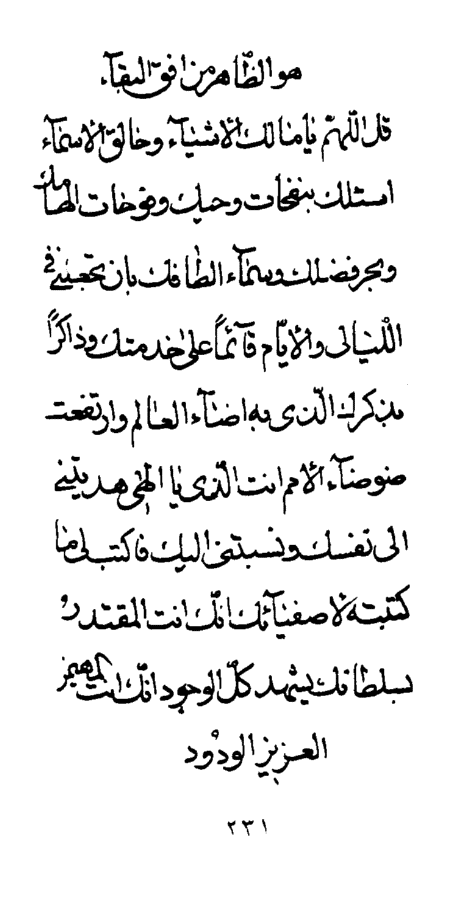 هو الظّاهر من افق البقآء
قل اللّهمّ يا مالك الأشيآء و خالق الأسمآء
اسئلك بنفحات وحيك و فوحات الهامك
و بحر فضلك و سمآء الطافك بان تجعلني في
اللّيالي و الأيّام قآئماً على خدمتك و ذاكراً
بذكرك الّذي به اضآء العالم و ارتفعت
ضوضآء الأمم انت الّذي يا الهي هديتني
الى نفسك و نسبتني اليك فاكتب لي ما
كتبته لأصفيآئك انّك انت المقتدر و
بسلطانك يشهد كلّ الوجود انّك انت المهيمن
العزيز الودود
٢٣١